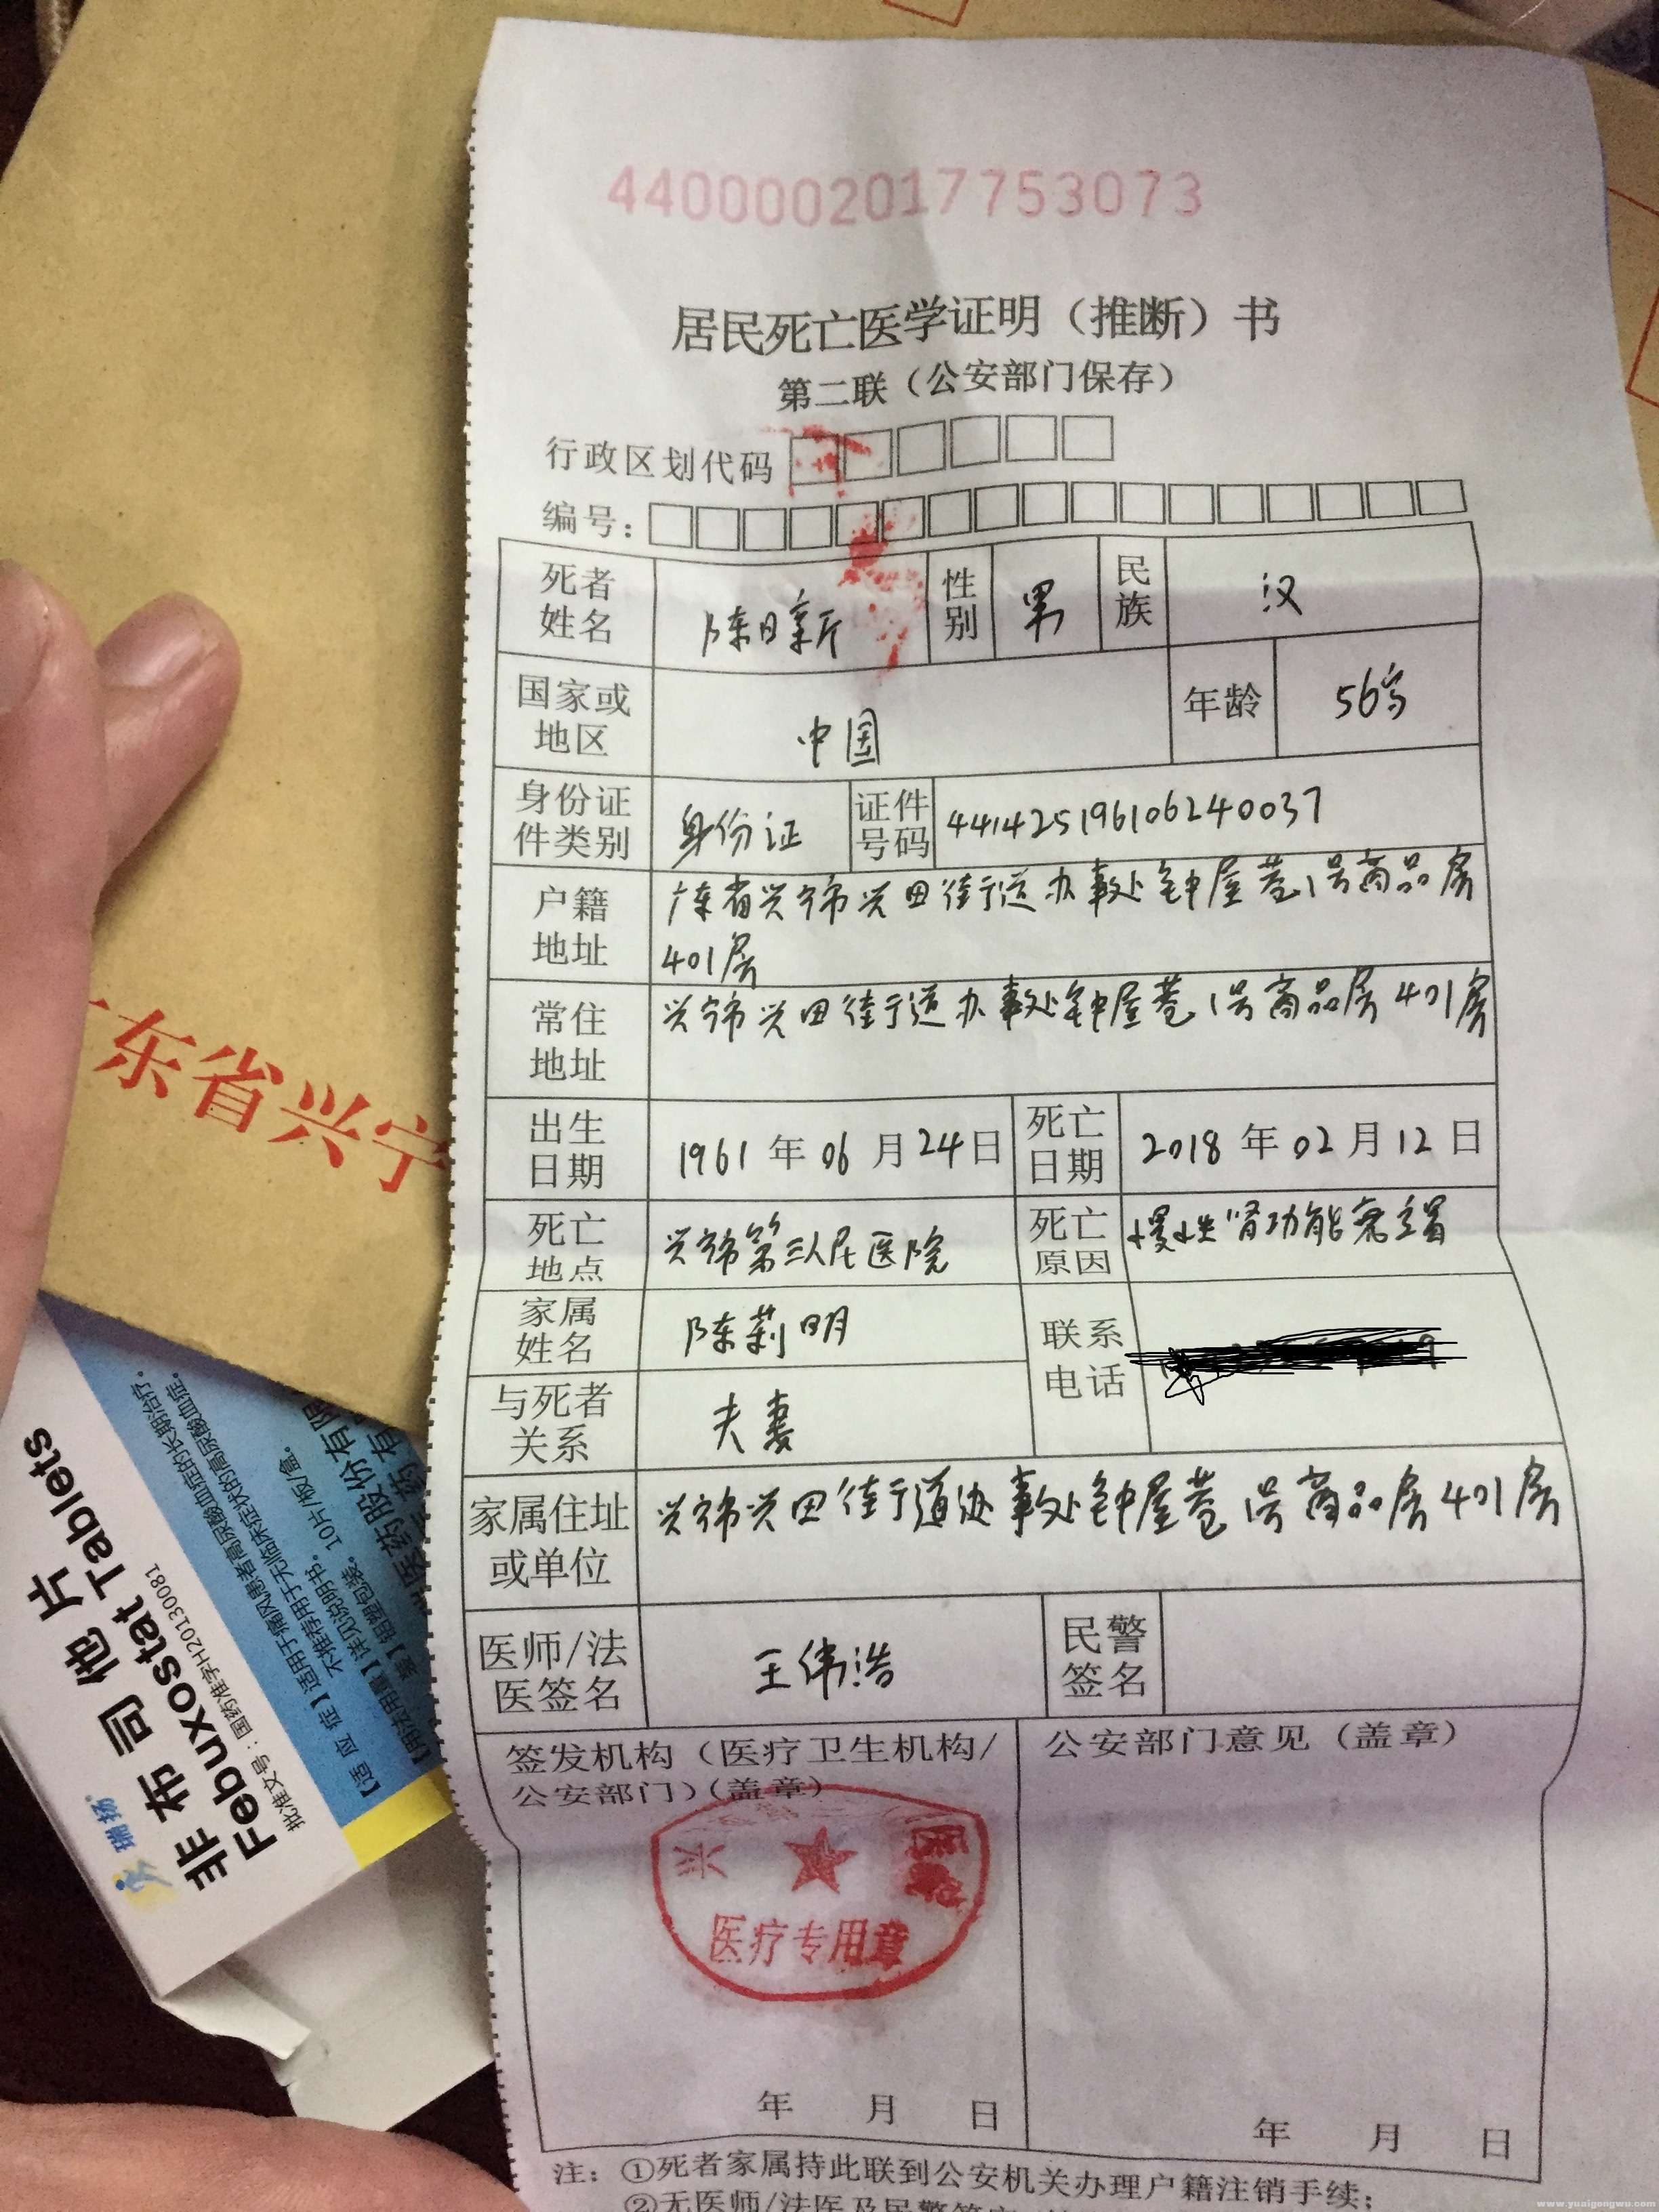 4400002017753073
居民死亡医学证明（推断）书
第二联（公安部门保存）
行政区划代码
编号：
死者姓名 陈日新 性别 男 民族 汉
国家或地区 中国 年龄 56岁
身份证件类别 身份证 证件号码 441425196106240037
户籍地址 广东省兴宁市兴田街道办事处钟屋巷1号商品房
401房
常住地址 兴宁市兴田街道办事处钟屋巷1号商品房401房
出生日期 1961年06月24日 死亡日期 2018年02月12日
死亡地点 兴宁市第三人民医院 死亡原因 慢性肾功能衰竭
家属姓名 陈莉明 联系电话
与死者关系 夫妻
家属住址或单位 兴宁市兴田街道办事处钟屋巷1号商品房401房
医师/法医签名 王伟浩 民警签名
签发机构（医疗卫生机构/
公安部门）（盖章）
公安部门意见（盖章）
兴 医院
医疗专用章
年 月 日
年 月 日
注：①死者家属持此联到公安机关办理户籍注销手续；
②无医师/法医及民警签字
东省兴宁
瑞扬
非布司他片
Febuxostat Tablets
批准文号：国药准字H20130081
【适应症】适用于痛风患者高尿酸血症的长期治疗。
不推荐用于无临床症状的高尿酸血症。
【用法用量】详见说明书。
【包装】铝塑包装。10片/板/盒。
医药股份有限
www.yuaigongwu.com